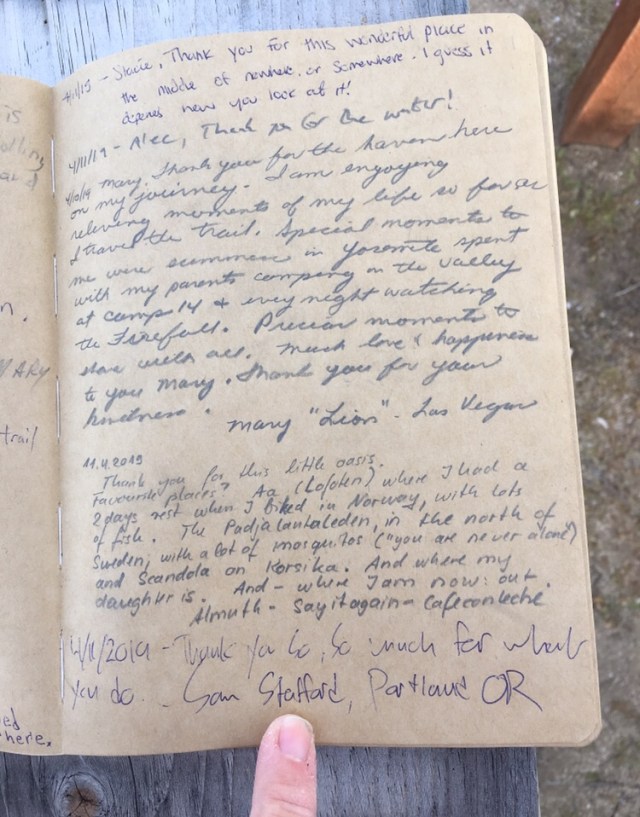 is
n.
MARY
trail
ed
here.
4/11/19 - Stacie, Thank you for this wonderful place in
the middle of nowhere. or somewhere. I guess it
depends how you look at it!
4/11/19 - Alec, Thank you for the water!
Mary, Thank you for the haven here
on my journey. I am engoying
reliving moments of my life so far as
I travel the trail. Special moments to
me were summers in Yosemite spent
with my parents camping on the valley
at camp 14 & every night watching
the Firefall. Precious moments to
share with all. Much love & happiness
to you Mary. Thank you for your
kindness.
Mary "Lion" - Las Vegas
11.4.2019
Thank you for this little oasis.
Favourite places? Aa (Lofoten) where I had a
2 days rest when I biked in Norway, with lots
of fish. The Padjalantaleden, in the north of
Sweden, with a lot of mosquitos ("you are never alone")
and Scandola on Korsika. And where my
daughter is. And - where I am now: out.
Almuth - Sayitagain - Cafeconleche
4/11/2019 - Thank you so, so much for what
you do. - Sam Stafford, Portland OR